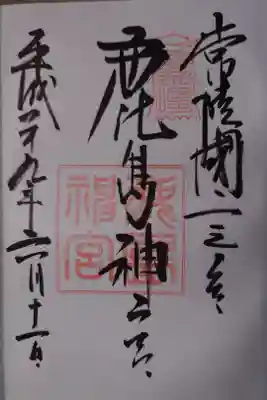 常陸國一之宮
鹿島神宮
平成二十九年六月十一日
鹿島神宮